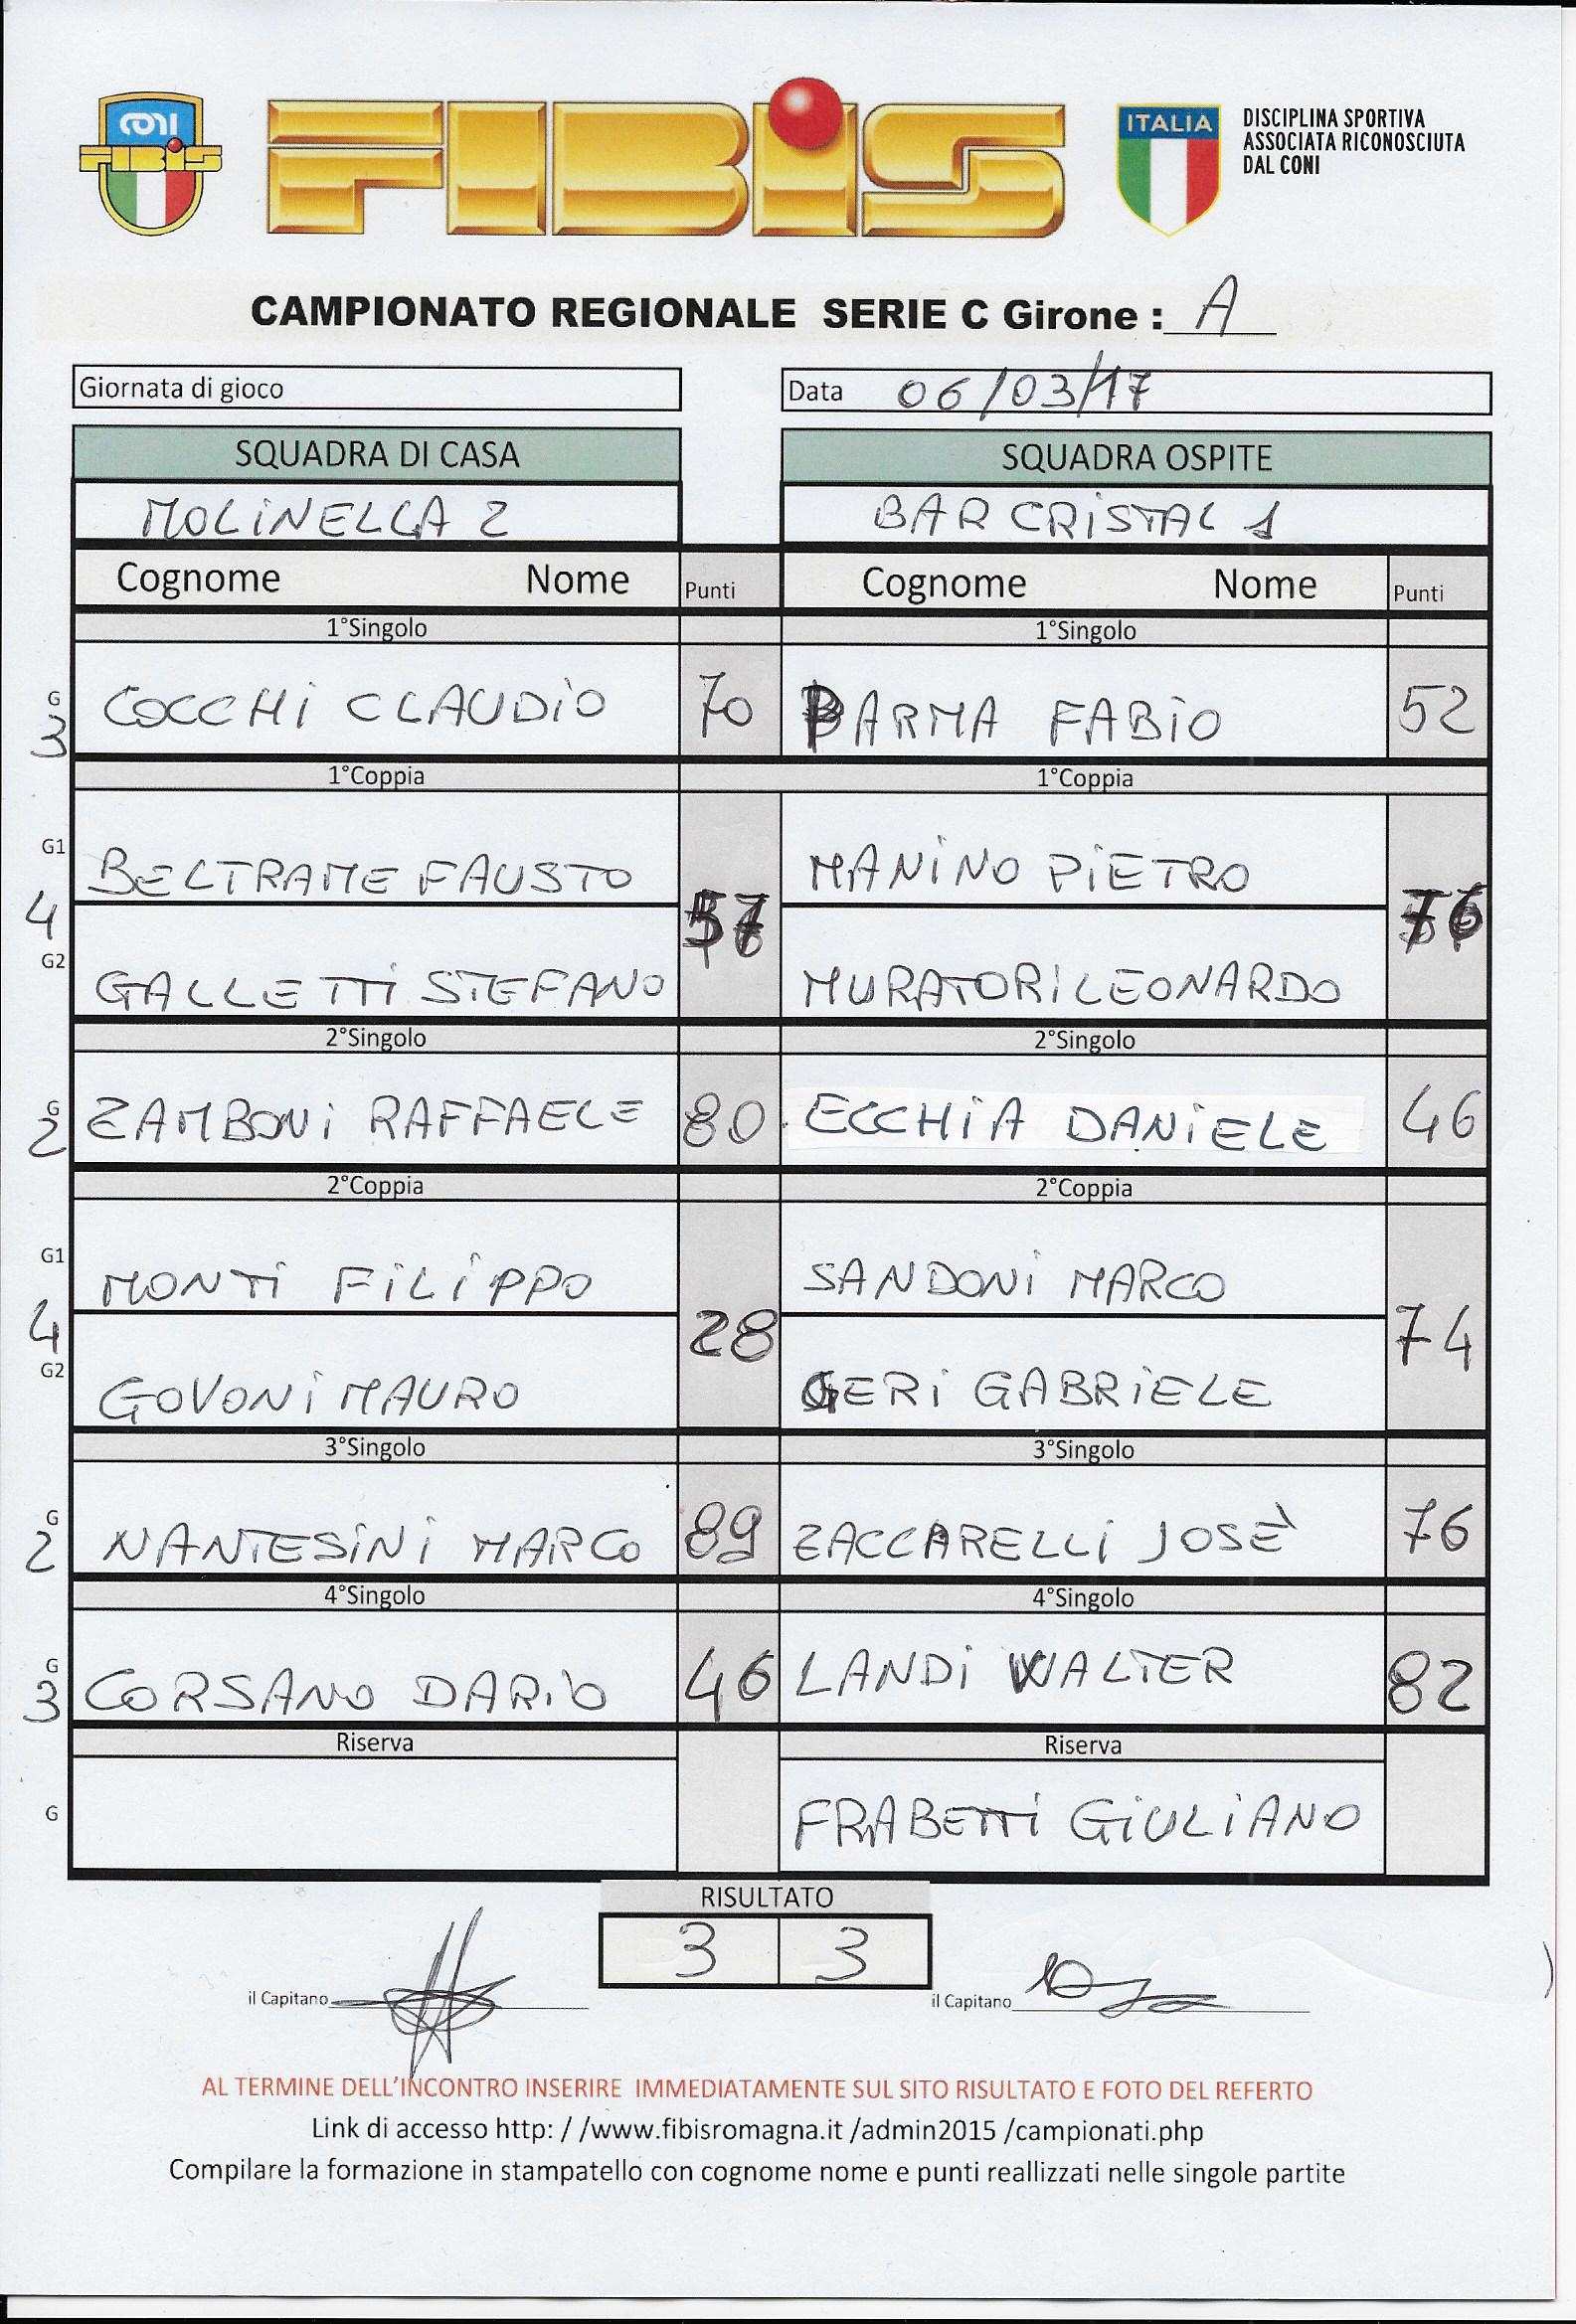 CONI
FIBiS
FIBiS
ITALIA
DISCIPLINA SPORTIVA
ASSOCIATA RICONOSCIUTA
DAL CONI
CAMPIONATO REGIONALE SERIE C Girone : A
Giornata di gioco
Data 06/03/17
SQUADRA DI CASA SQUADRA OSPITE
MOLiNELLA 2 BAR CRiSTAL 1
Cognome Nome Punti Cognome Nome Punti
1°Singolo 1°Singolo
G
3 COCCHi CLAUDiO 70 PARMA FABiO 52
1°Coppia 1°Coppia
G1 BELTRAME FAUSTO MANiNO PiETRO
4 57 76
G2 GALLETTi STEFANO MURATORi LEONARDO
2°Singolo 2°Singolo
G
2 ZAMBONi RAFFAELE 80 ECCHiA DANiELE 46
2°Coppia 2°Coppia
G1 MONTi FiLiPPO SANDONi MARCO
4 28 74
G2 GOVONi MAURO GERi GABRiELE
3°Singolo 3°Singolo
G
2 NANTESiNi MARCO 89 ZACCARELLi JOSÈ 76
4°Singolo 4°Singolo
G
3 CORSANO DARiO 46 LANDi WALTER 82
Riserva Riserva
G FRABETTi GiULiANO
RISULTATO
3 3
il Capitano il Capitano
AL TERMINE DELL'INCONTRO INSERIRE IMMEDIATAMENTE SUL SITO RISULTATO E FOTO DEL REFERTO
Link di accesso http: / /www.fibisromagna.it /admin2015 /campionati.php
Compilare la formazione in stampatello con cognome nome e punti reallizzati nelle singole partite